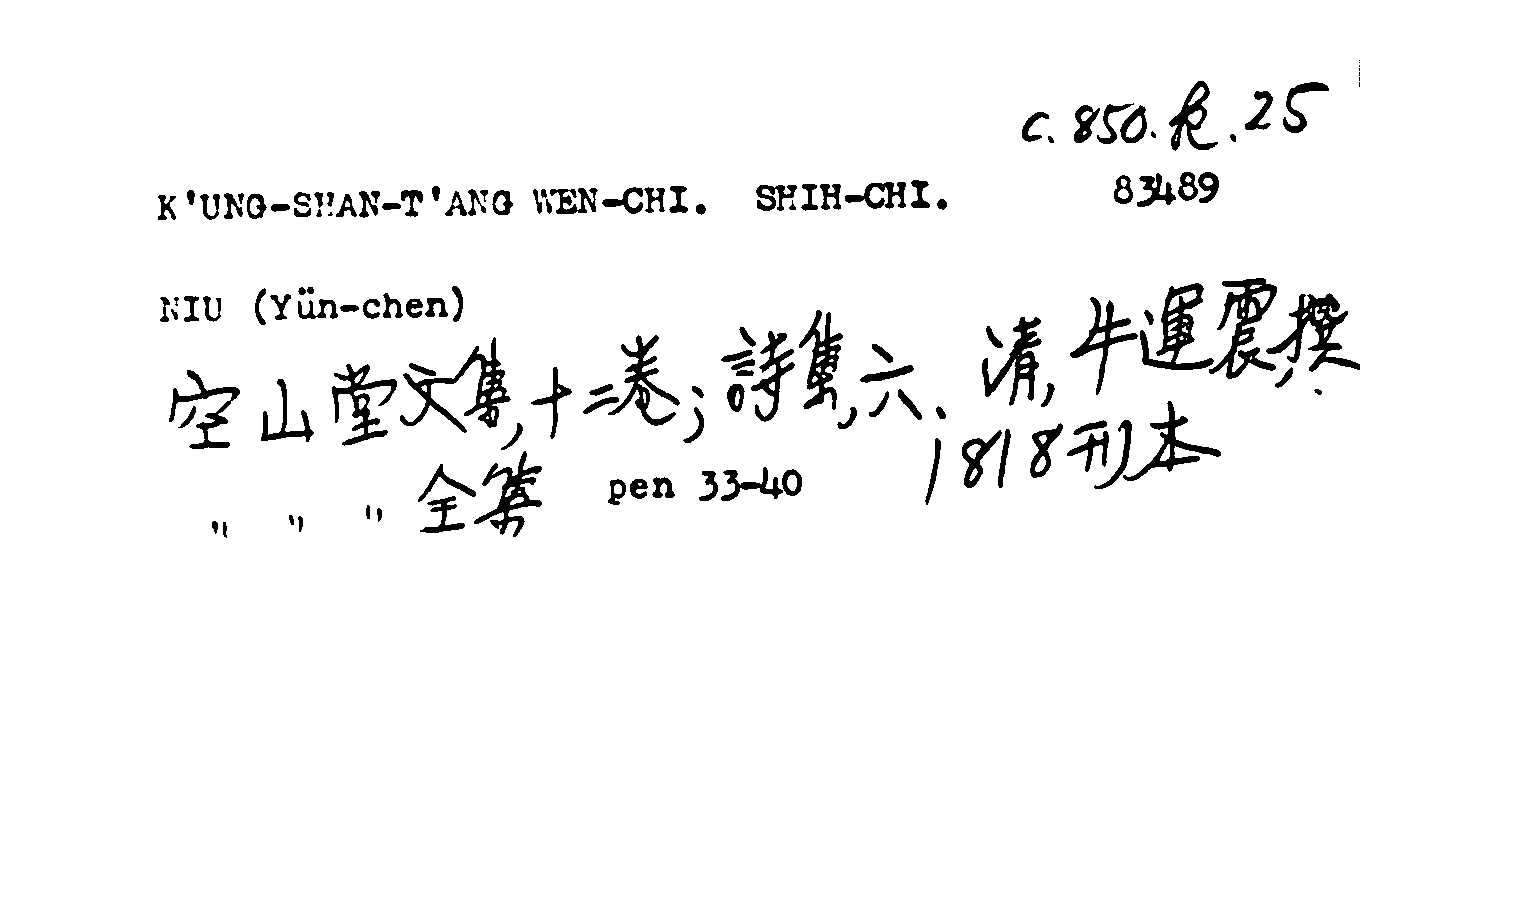 C. 850. k. 25
K'UNG-SHAN-T'ANG WEN-CHI. SHIH-CHI. 83489
NIU (Yün-chen)
空山堂文集,十二卷; 詩集,六、 清,牛運震,撰.
" " " 全集 pen 33-40 1818刊本